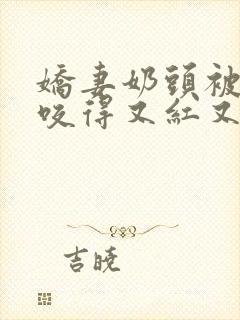 嬌妻奶頭被
咬得又紅又
吉曉